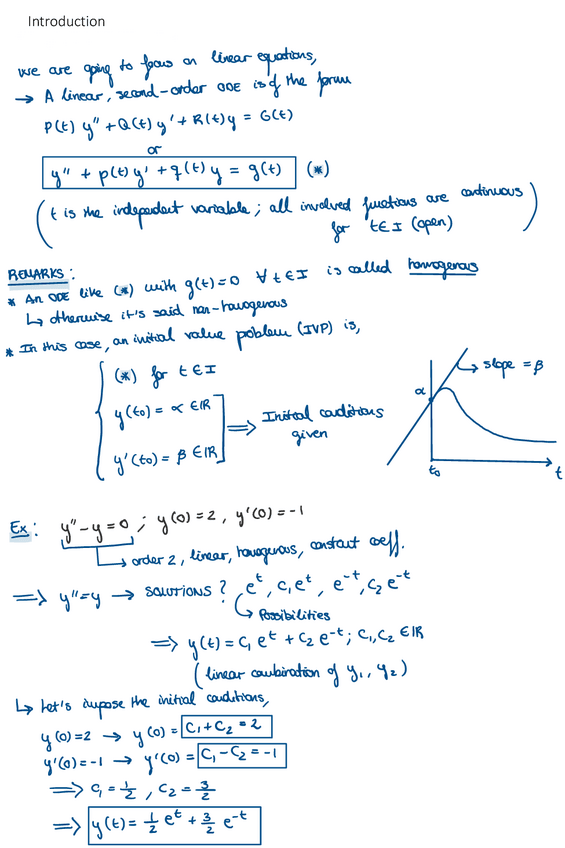 Introduction
we are going to focus on linear equations,
→ A linear, second-order ODE is of the form
P(t) y'' + Q(t) y' + R(t) y = G(t)
or
y'' + p(t) y' + q(t) y = g(t) (*)
(t is the independent variable; all involved functions are continuous
for t∈I (open))
REMARKS:
* An ODE like (*) with g(t)=0 ∀t∈I is called homogenous
↳ otherwise it's said non-homogenous
* In this case, an initial value problem (IVP) is,
(*) for t∈I
y(t₀) = α ∈ℝ
y'(t₀) = β ∈ℝ
⟹ Initial conditions
given
slope = β
α
t₀
t
Ex: y''-y=0; y(0)=2, y'(0)=-1
↳ order 2, linear, homogenous, constant coeff.
⟹ y''=y → SOLUTIONS? eᵗ, c₁eᵗ, e⁻ᵗ, c₂e⁻ᵗ
↳ Possibilities
⟹ y(t) = c₁ eᵗ + c₂ e⁻ᵗ; c₁,c₂ ∈ℝ
(linear combination of y₁, y₂)
↳ Let's impose the initial conditions,
y(0)=2 → y(0) = c₁+c₂ = 2
y'(0)=-1 → y'(0) = c₁-c₂ = -1
⟹ c₁ = 1/2, c₂ = 3/2
⟹ y(t) = 1/2 eᵗ + 3/2 e⁻ᵗ